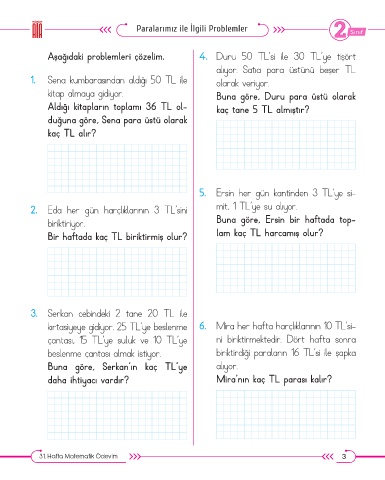 Paralarımız ile İlgili Problemler
2. Sınıf
Aşağıdaki problemleri çözelim.
1. Sena kumbarasından aldığı 50 TL ile
kitap almaya gidiyor.
Aldığı kitapların toplamı 36 TL ol-
duğuna göre, Sena para üstü olarak
kaç TL alır?
2. Eda her gün harçlıklarının 3 TL'sini
biriktiriyor.
Bir haftada kaç TL biriktirmiş olur?
3. Serkan cebindeki 2 tane 20 TL ile
kırtasiyeye gidiyor. 25 TL'ye beslenme
çantası, 15 TL'ye suluk ve 10 TL'ye
beslenme çantası almak istiyor.
Buna göre, Serkan'ın kaç TL'ye
daha ihtiyacı vardır?
4. Duru 50 TL'si ile 30 TL'ye tişört
alıyor. Satıcı para üstünü beşer TL
olarak veriyor.
Buna göre, Duru para üstü olarak
kaç tane 5 TL almıştır?
5. Ersin her gün kantinden 3 TL'ye si-
mit, 1 TL'ye su alıyor.
Buna göre, Ersin bir haftada top-
lam kaç TL harcamış olur?
6. Mira her hafta harçlıklarının 10 TL'si-
ni biriktirmektedir. Dört hafta sonra
biriktirdiği paraların 16 TL'si ile şapka
alıyor.
Mira'nın kaç TL parası kalır?
31. Hafta Matematik Ödevim
3